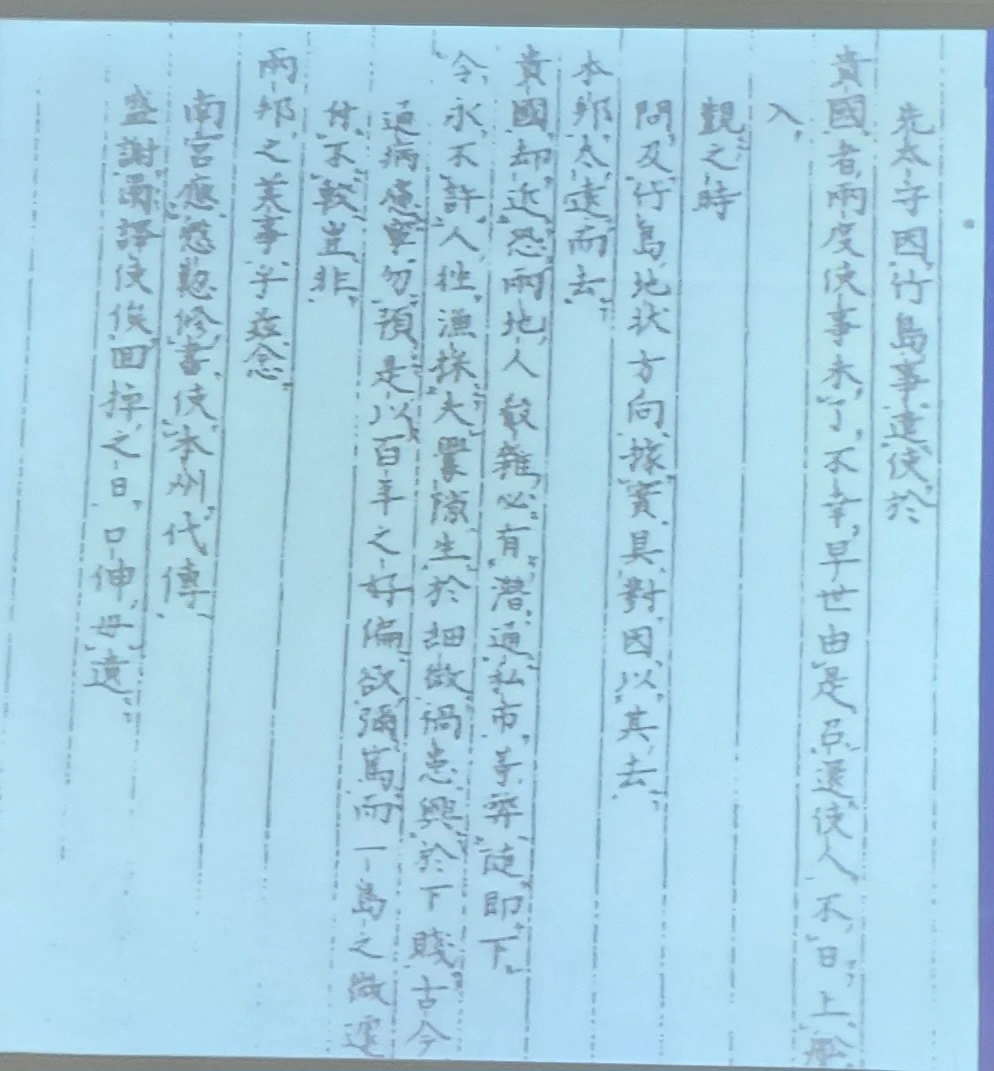 先太守因竹島事遣使於
貴國者兩度使事未了不幸早世由是召還使人不日上船
入
觀之時
問及竹島地状方向據實具對因以其去
本邦太遠而去
貴國却近恐兩地人殽雜必有潜通私市等弊随即下
令永不許人往漁採夫釁隙生於細微禍患興於下賤古今
通病慮寧勿預是以百年之好偏欲彌篤而一島之微遽
付不較豈非
兩邦之美事乎茲念
南宮應慇懃修書使本州代傳
盛謝兪譯使俟回棹之日口伸毋遺